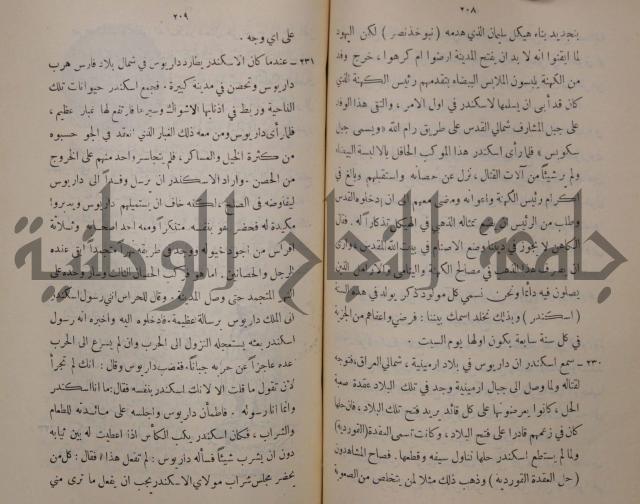 ٢٠٨
بتجديد بناء هيكل سليمان الذي هدمه ( نبوخذنصر ) لكن اليهود
لما ايقنوا انه لا بد ان يفتح المدينة ارضوا ام كرهوا ، خرج وفد
من الكهنة يلبسون الملابس البيضاء يتقدمهم رئيس الكهنة الذي
كان قد أبى ان يسلمها لاسكندر في اول الامر ، والتقى هذا الوفد
على جبل المشارف شمالي القدس على طريق رام الله « ويسمى جبل
سكوبس » فلما رأى اسكندر هذا الموكب الحافل بالالبسة البيضاء
ولم ير شيئاً من آلات القتال ، نزل عن حصانه واستقبلهم وبالغ في
اكرام رئيس الكهنة واعوانه ومضى معهم الى ان ادخلوه القدس
وطلب من الرئيس تمثاله الذهبي في الهيكل تذكارا له . فقال
الكاهن لا يجوز في ديننا وضع الاصنام في بيت الله المقدس ، وارى
ان يصرف هذا الذهب في مصالح الكهنة واليتامى والارامل الذين
يصلون فيه دائماً ونحن نسمي كل مولود ذكر يولد في هذه السنة
( اسكندر ) وبذلك نخلد اسمك بيننا : فرضي واعفاهم من الجزية
في كل سنة سابعة يكون اولها يوم السبت .
٢٣٠ – سمع اسكندر ان داريوس في بلاد ارمينية ، شمالي العراق ، فتوجه
لقتاله ولما وصل الى جبال ارمينية وجد في تلك البلاد عقدة صعبة
الحل ، كانوا يعرضونها على كل قائد يريد فتح تلك البلاد ، فان حلها
كان في زعمهم قادرا على فتح البلاد ، وكانت تسمى العقدة (القوردية)
ولما لم يستطع اسكندر حلها تناول سيفه وقطعها . فصاح المشاهدون
( حل العقدة القوردية ) وذهب ذلك مثلا لمن يتخلص من الصعوبة
٢٠٩
على اي وجه .
٢٣١ – عندما كان الاسكندر يطارد داريوس في شمال بلاد فارس هرب
داريوس وتحصن في مدينة كبيرة . فجمع اسكندر حيوانات تلك
الناحية وربط في اذنابها الاشواك وسيرها فارتفع لها غبار عظيم ،
فلما رأى داريوس ومن معه ذلك الغبار الذي انعقد في الجو حسبوه
من كثرة الخيل والعساكر ، فلم يتجاسر واحد منهم على الخروج
من الحصن . واراد الاسكندر ان يرسل وفداً الى داريوس
ليفاوضه في الصلح ، لكنه خاف ان يستميلهم داريوس ويدبروا
مكيدة له فحضر هو بنفسه متنكراً ومعه احد اصحابه وثلاثة
افراس من اجود خيوله ووجد في طريقه نهراً متجمداً ابقى عنده
الرجل والحصانين . اما هو فركب الحصان الثالث وسار وحده على
النهر المتجمد حتى وصل المدينة . وقال للحراس انني رسول اسكندر
الى الملك داريوس برسالة عظيمة . فدخلوه اليه واخبره انه رسول
اسكندر بعثه يستعجله النزول الى الحرب وان لم يسرع الى الحرب
عده عاجزاً عن حرابه جباناً . فغضب داريوس وقال : انك لم تجرأ
لأن تقول ما قلت الا لانك اسكندر بنفسه فقال : ما انا اسكندر
وانما انا رسوله . فاطمأن داريوس واجلسه على مائدته للطعام
والشراب ، فكان اسكندر يكب الكأس اذا اعطيت له بين ثيابه
دون ان يشرب شيئاً فسأله داريوس : لم تفعل هذا ؟ فقال : كل من
يحضر مجلس شراب مولاي الاسكندر يجب ان يفعل ما ترى مني
جامعة النجاح الوطنية